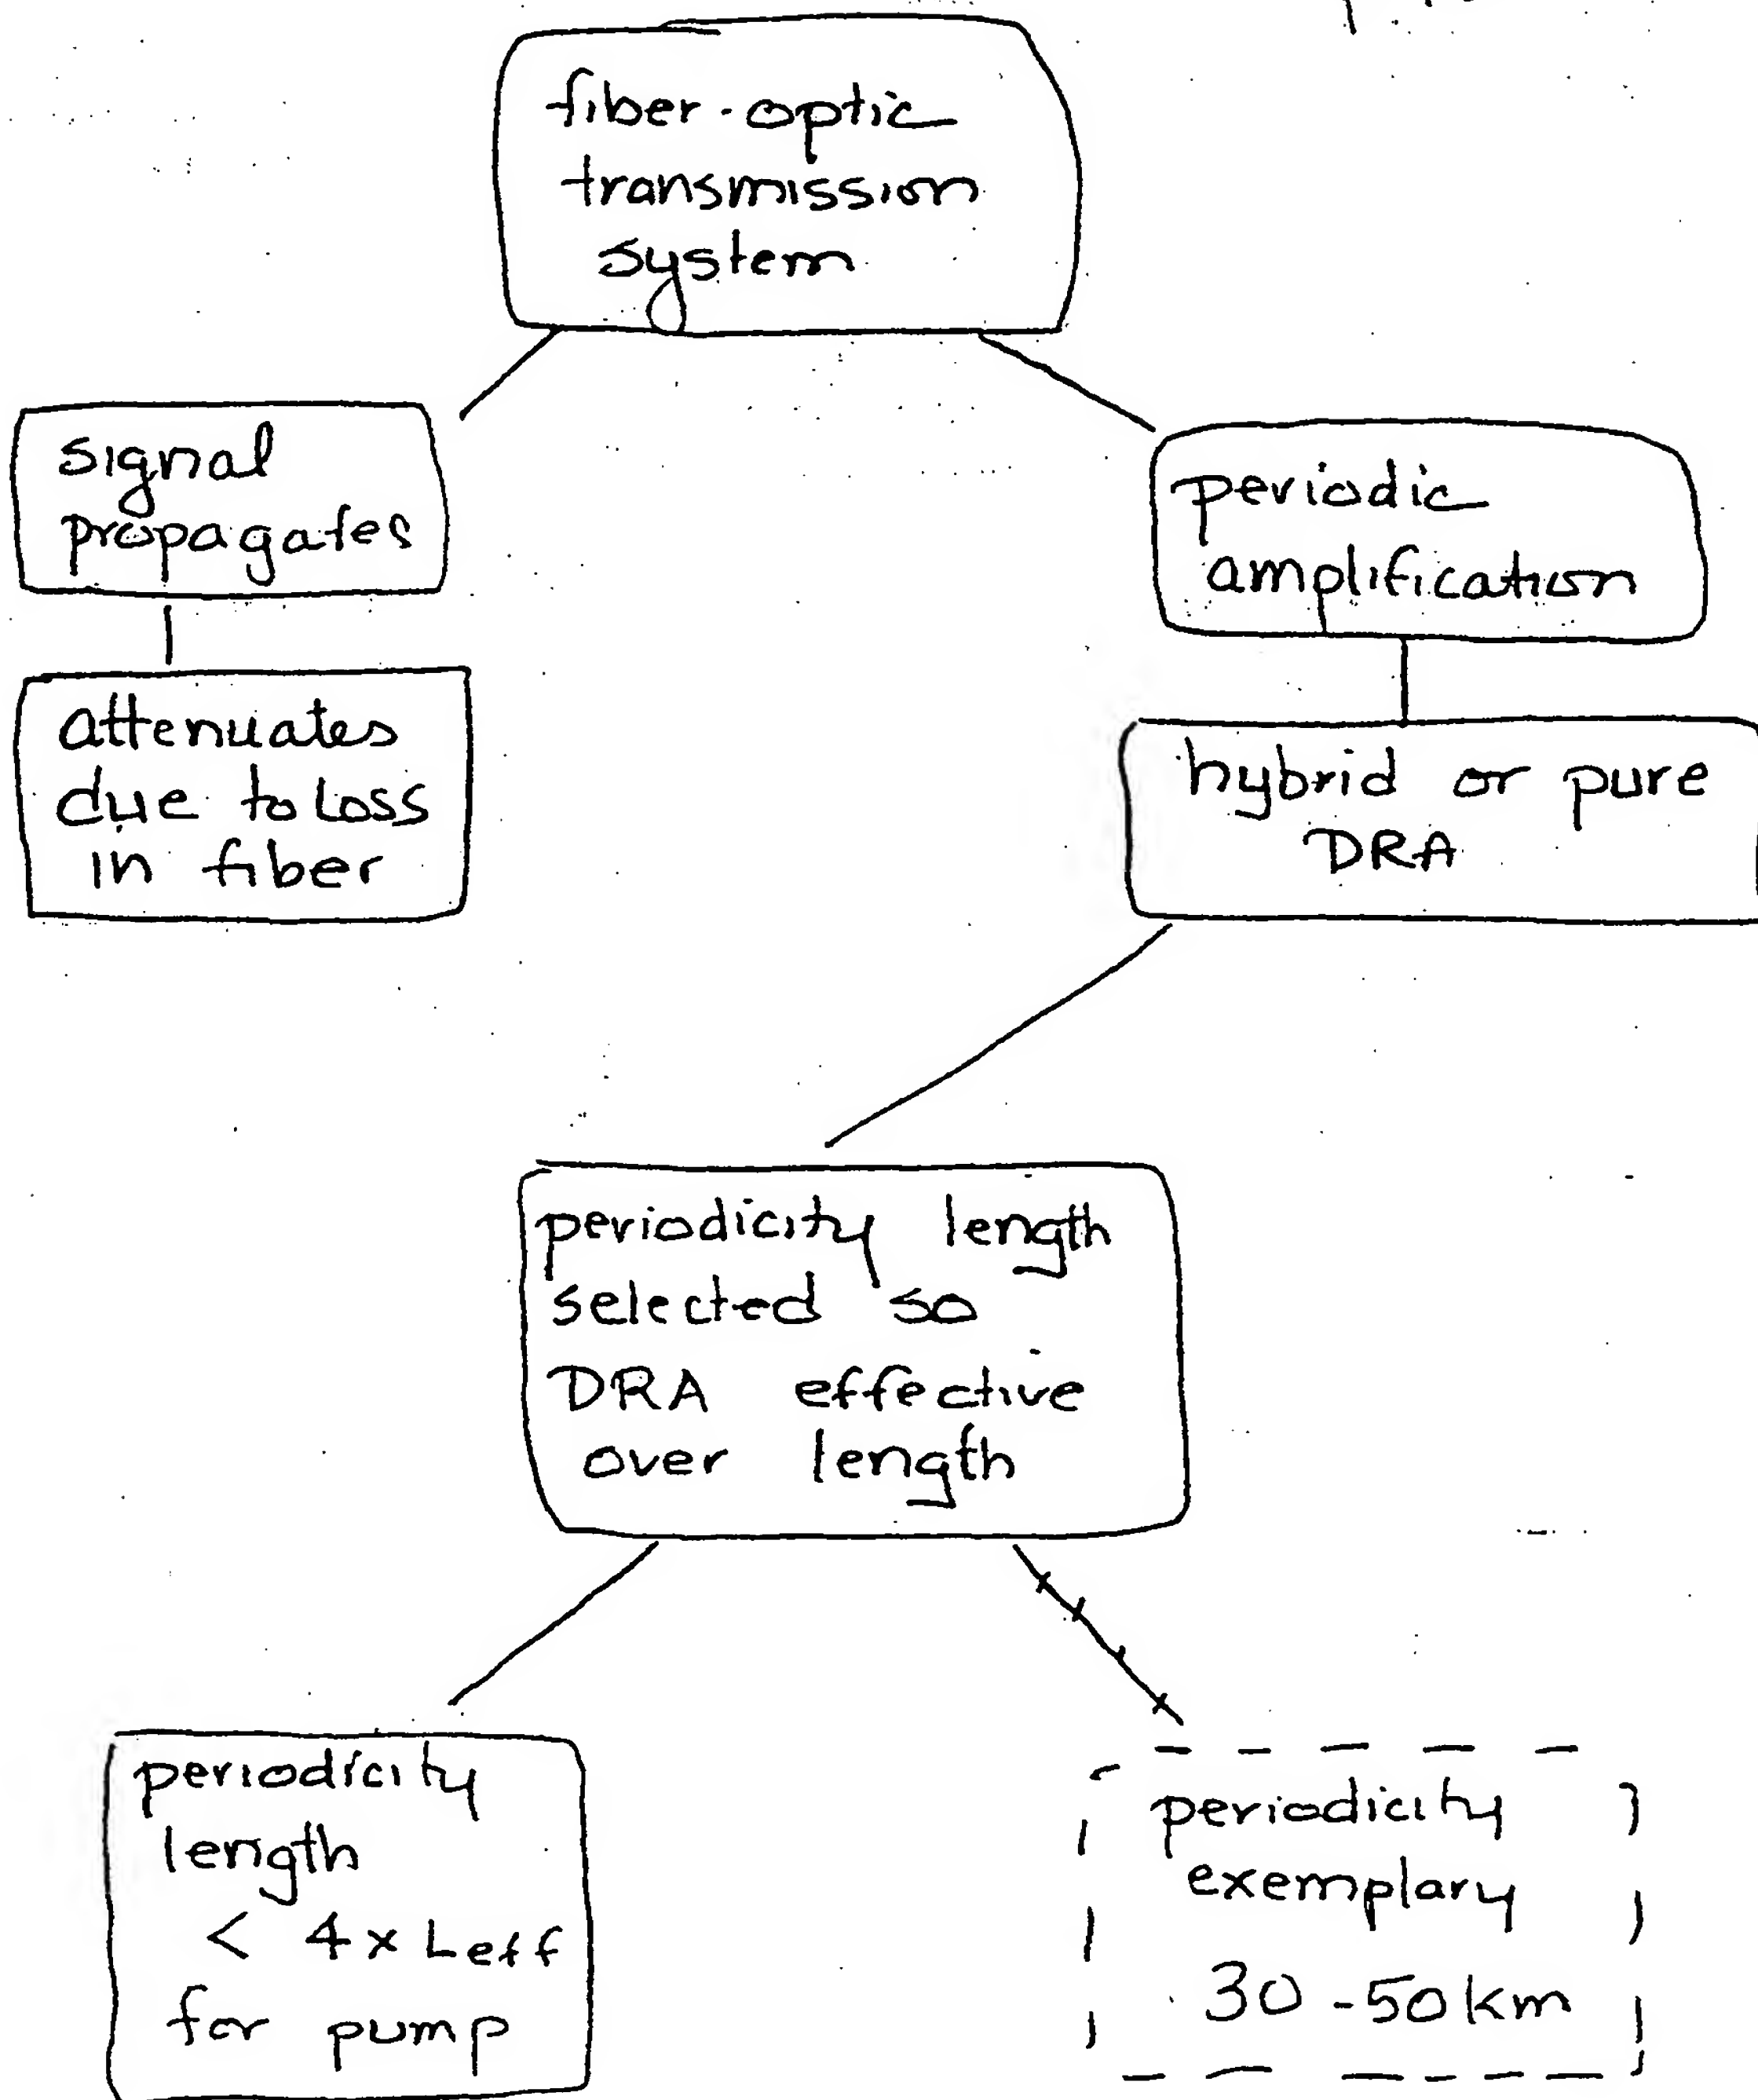 fiber-optic
transmission
system
signal
propagates
periodic
amplification
attenuates
due to loss
in fiber
hybrid or pure
DRA
periodicity length
selected so
DRA effective
over length
periodicity
length
< 4x Leff
for pump
periodicity
exemplary
30-50km